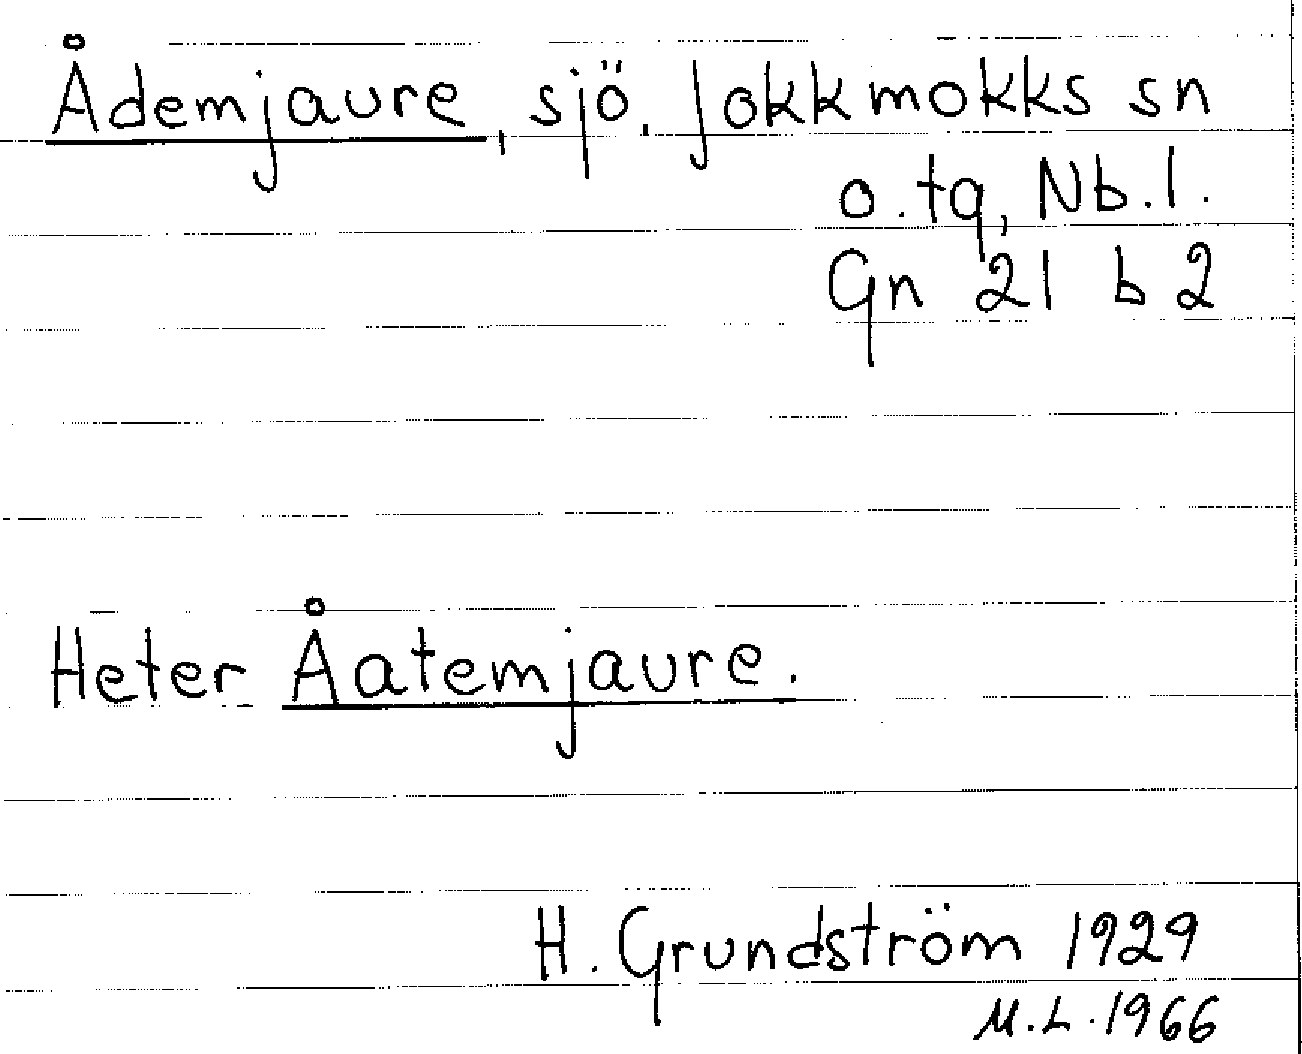 Ådemjaure, sjö, Jokkmokks sn
o. tg, Nb.l.
Gn 21 b 2
Heter Åatemjaure.
H. Grundström 1929
M.L. 1966